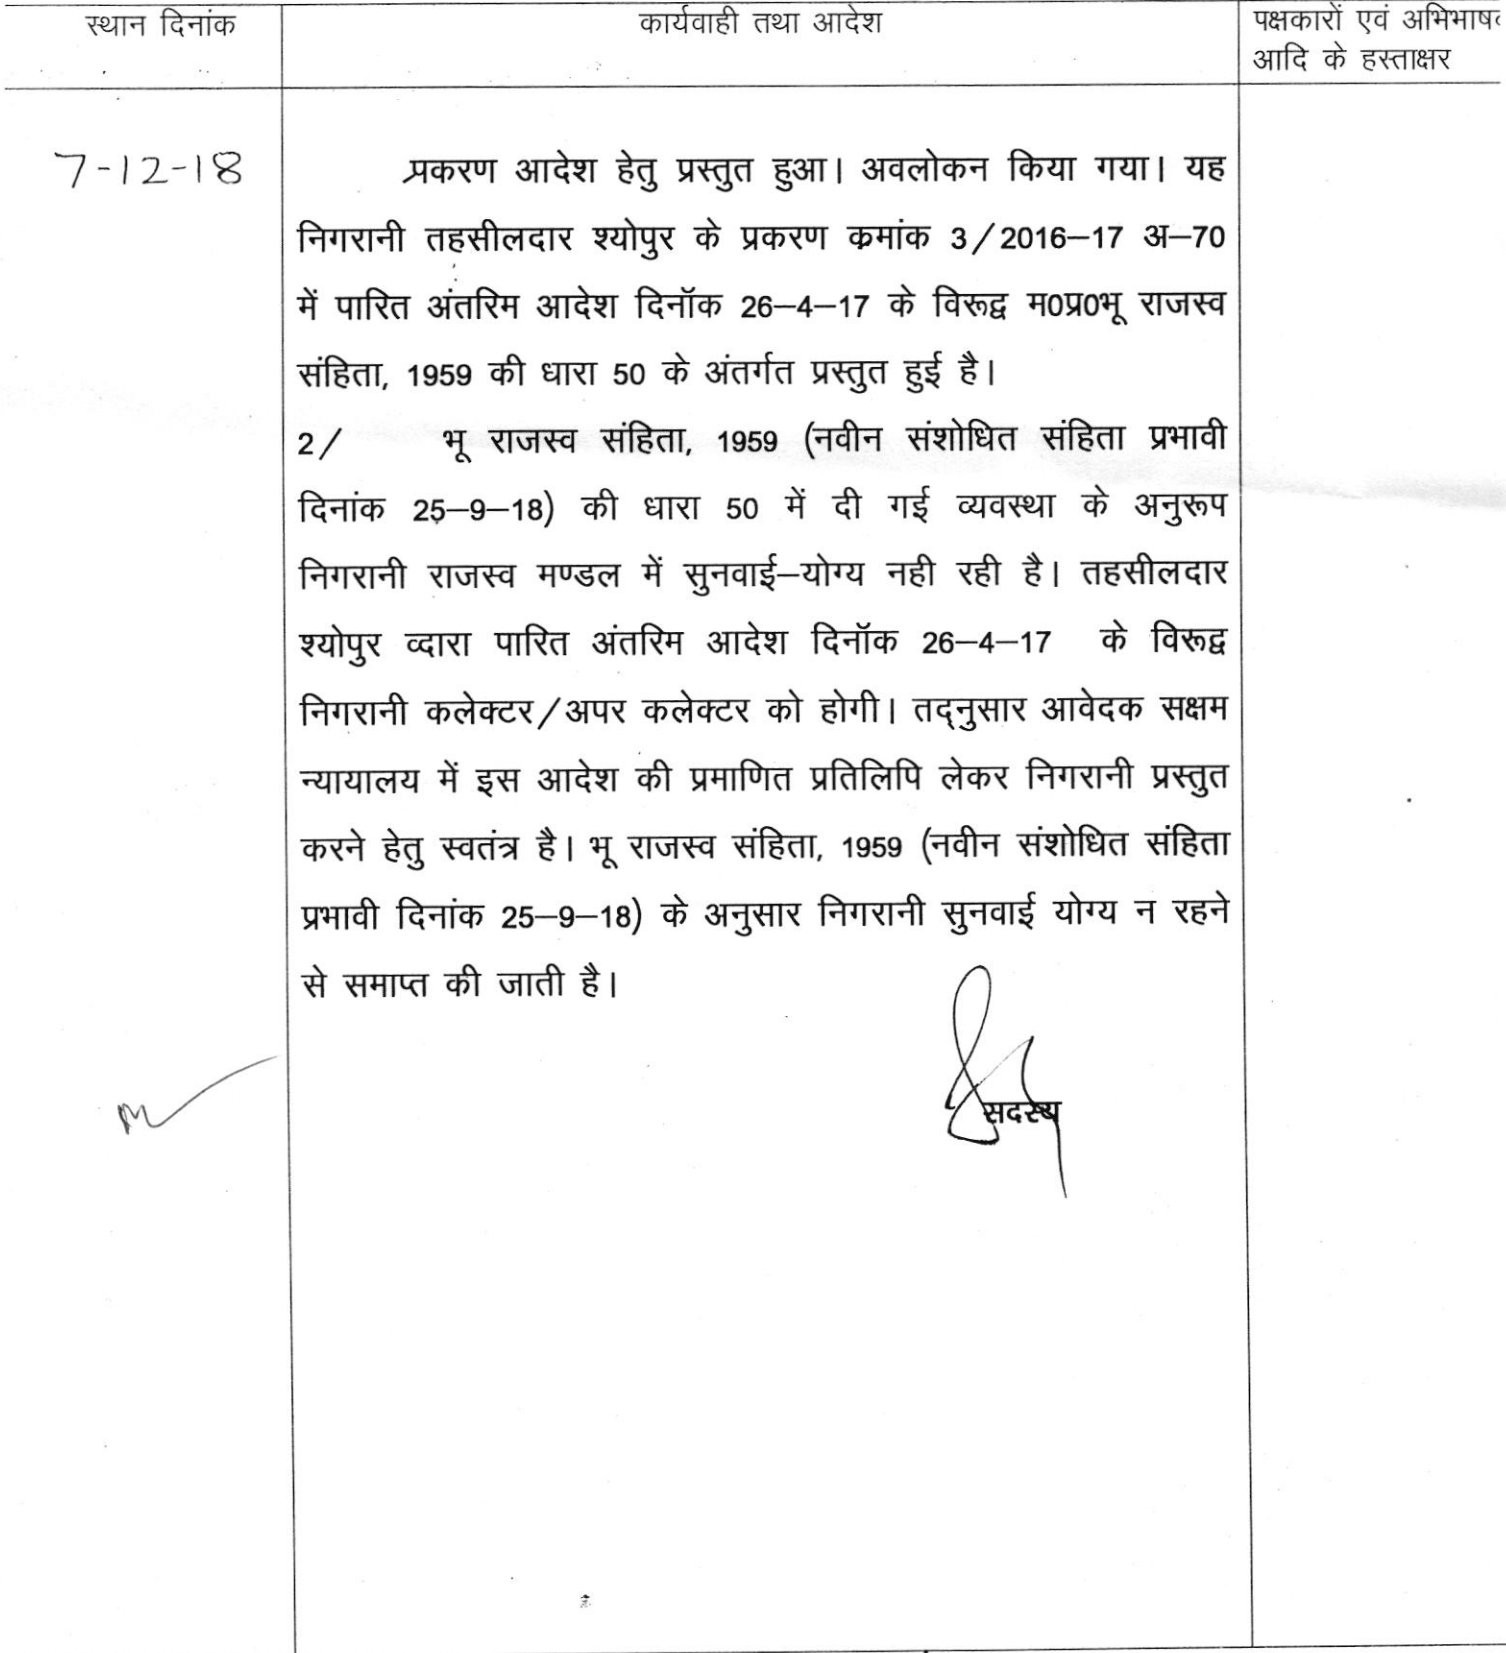 स्थान दिनांक
कार्यवाही तथा आदेश
पक्षकारों एवं
आदि के हस्ताक्षर
7-12-18
प्रकरण आदेश हेतु प्रस्तुत हुआ। अवलोकन किया गया। यह
निगरानी तहसीलदार श्योपुर के प्रकरण कमांक 3/2016–17 अ–70
में पारित अंतरिम आदेश दिनॉक 26–4–17 के विरूद्व म0प्र0भू राजस्व
संहिता, 1959 की धारा 50 के अंतर्गत प्रस्तुत हुई है।
2/ भू राजस्व संहिता, 1959 (नवीन संशोधित संहिता प्रभावी
दिनांक 25–9–18) की धारा 50 में दी गई व्यवस्था के अनुरूप
निगरानी राजस्व मण्डल में सुनवाई–योग्य नही रही है। तहसीलदार
श्योपुर व्दारा पारित अंतरिम आदेश दिनॉक 26–4–17 के विरूद्व
निगरानी कलेक्टर/अपर कलेक्टर को होगी। तद्नुसार आवेदक सक्षम
न्यायालय में इस आदेश की प्रमाणित प्रतिलिपि लेकर निगरानी प्रस्तुत
करने हेतु स्वतंत्र है। भू राजस्व संहिता, 1959 (नवीन संशोधित संहिता
प्रभावी दिनांक 25–9–18) के अनुसार निगरानी सुनवाई योग्य न रहने
से समाप्त की जाती है।
सदस्य